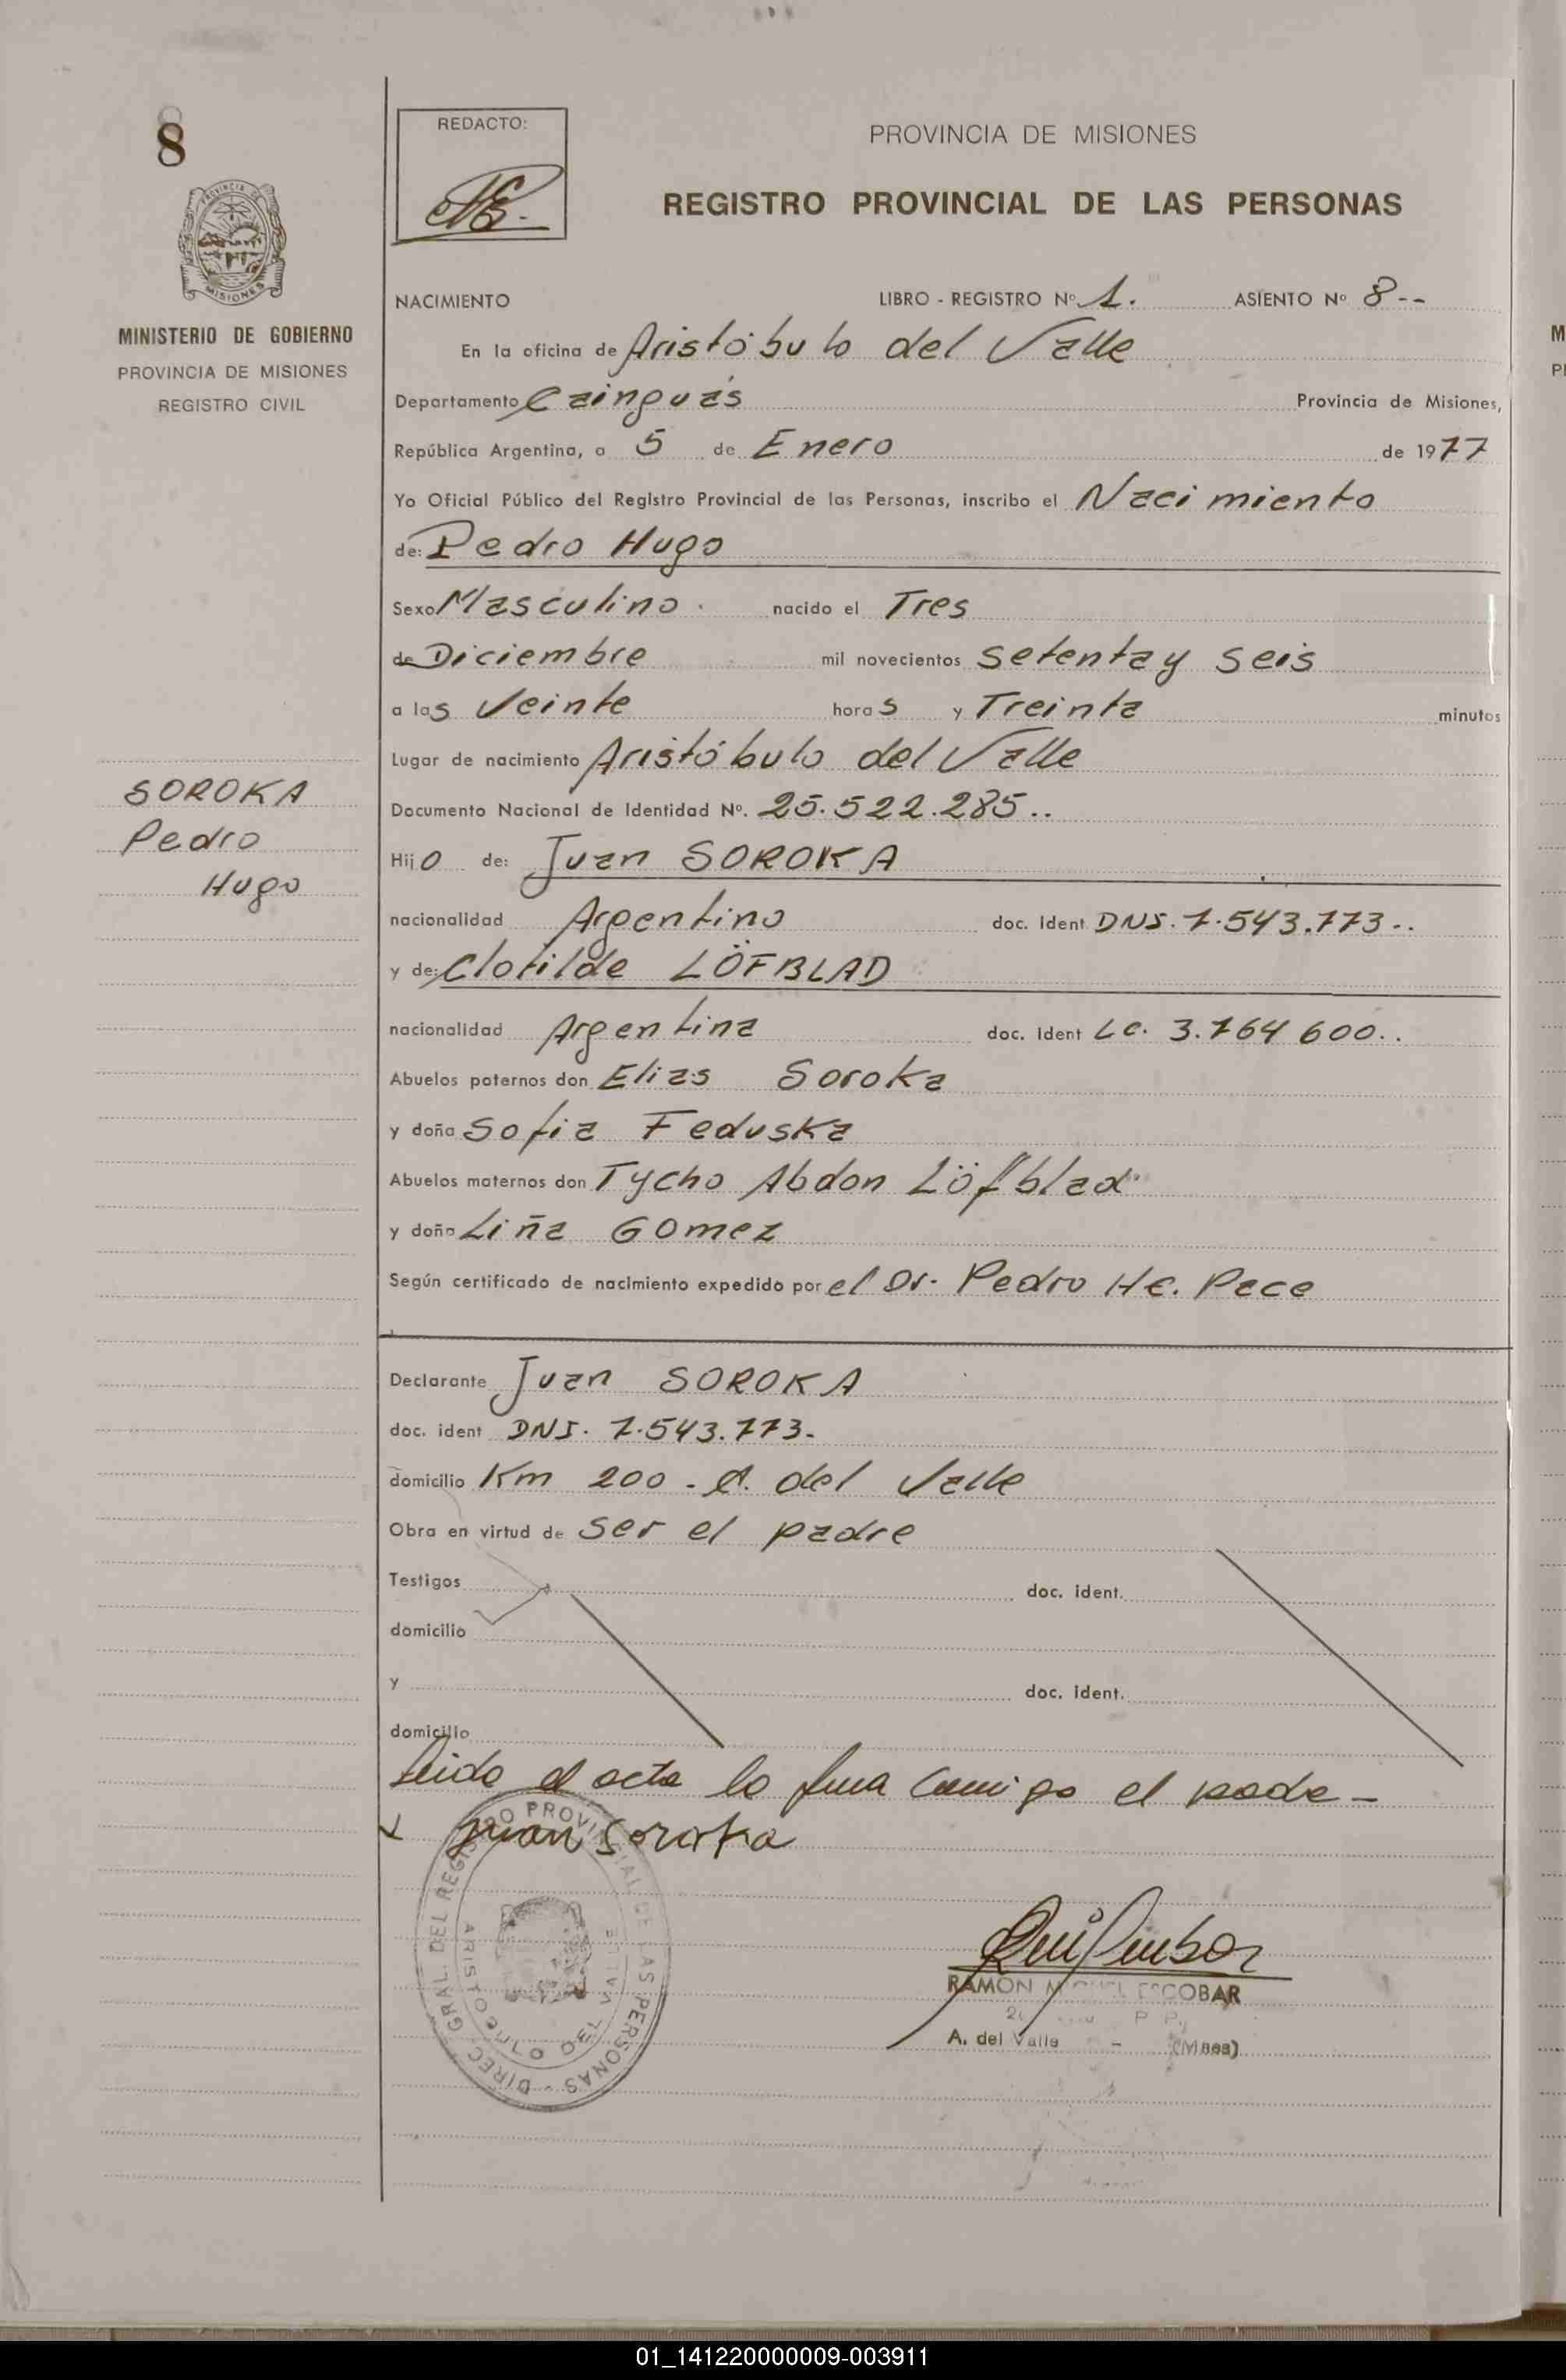 8
PROVINCIA DE MISIONES
MINISTERIO DE GOBIERNO
PROVINCIA DE MISIONES
REGISTRO CIVIL
SOROKA
Pedro
Hugo
REDACTO:
PROVINCIA DE MISIONES
REGISTRO PROVINCIAL DE LAS PERSONAS
NACIMIENTO LIBRO - REGISTRO Nº 1. ASIENTO Nº 8--
En la oficina de Aristóbulo del Valle
Departamento Cainguás Provincia de Misiones,
República Argentina, a 5 de Enero de 1977
Yo Oficial Público del Registro Provincial de las Personas, inscribo el Nacimiento
de: Pedro Hugo
Sexo Masculino. nacido el Tres
de Diciembre mil novecientos setenta y seis
a las Veinte horas y Treinta minutos
Lugar de nacimiento Aristóbulo del Valle
Documento Nacional de Identidad Nº. 25.522.285..
Hijo de: Juan SOROKA
nacionalidad Argentino doc. ident DNI. 7.543.773-.
y de: Clotilde LÖFBLAD
nacionalidad Argentina doc. ident LC. 3.764 600..
Abuelos paternos don Elias Soroka
y doña Sofia Feduska
Abuelos maternos don Tycho Abdon Löfblad
y doña Liña Gomez
Según certificado de nacimiento expedido por el Dr. Pedro He. Pace
Declarante Juan SOROKA
doc. ident DNI. 7.543.773-
domicilio Km 200 - A. del Valle
Obra en virtud de ser el padre
Testigos doc. ident.
domicilio
y doc. ident.
domicilio
Leida el acta lo firma Conmigo el padre -
Juan Soroka
DIREC. GRAL. DEL REGISTRO PROVINCIAL DE LAS PERSONAS -
ARISTOBULO DEL VALLE
RAMON MIGUEL ESCOBAR
A. del Valle - (Mnes)
01_141220000009-003911